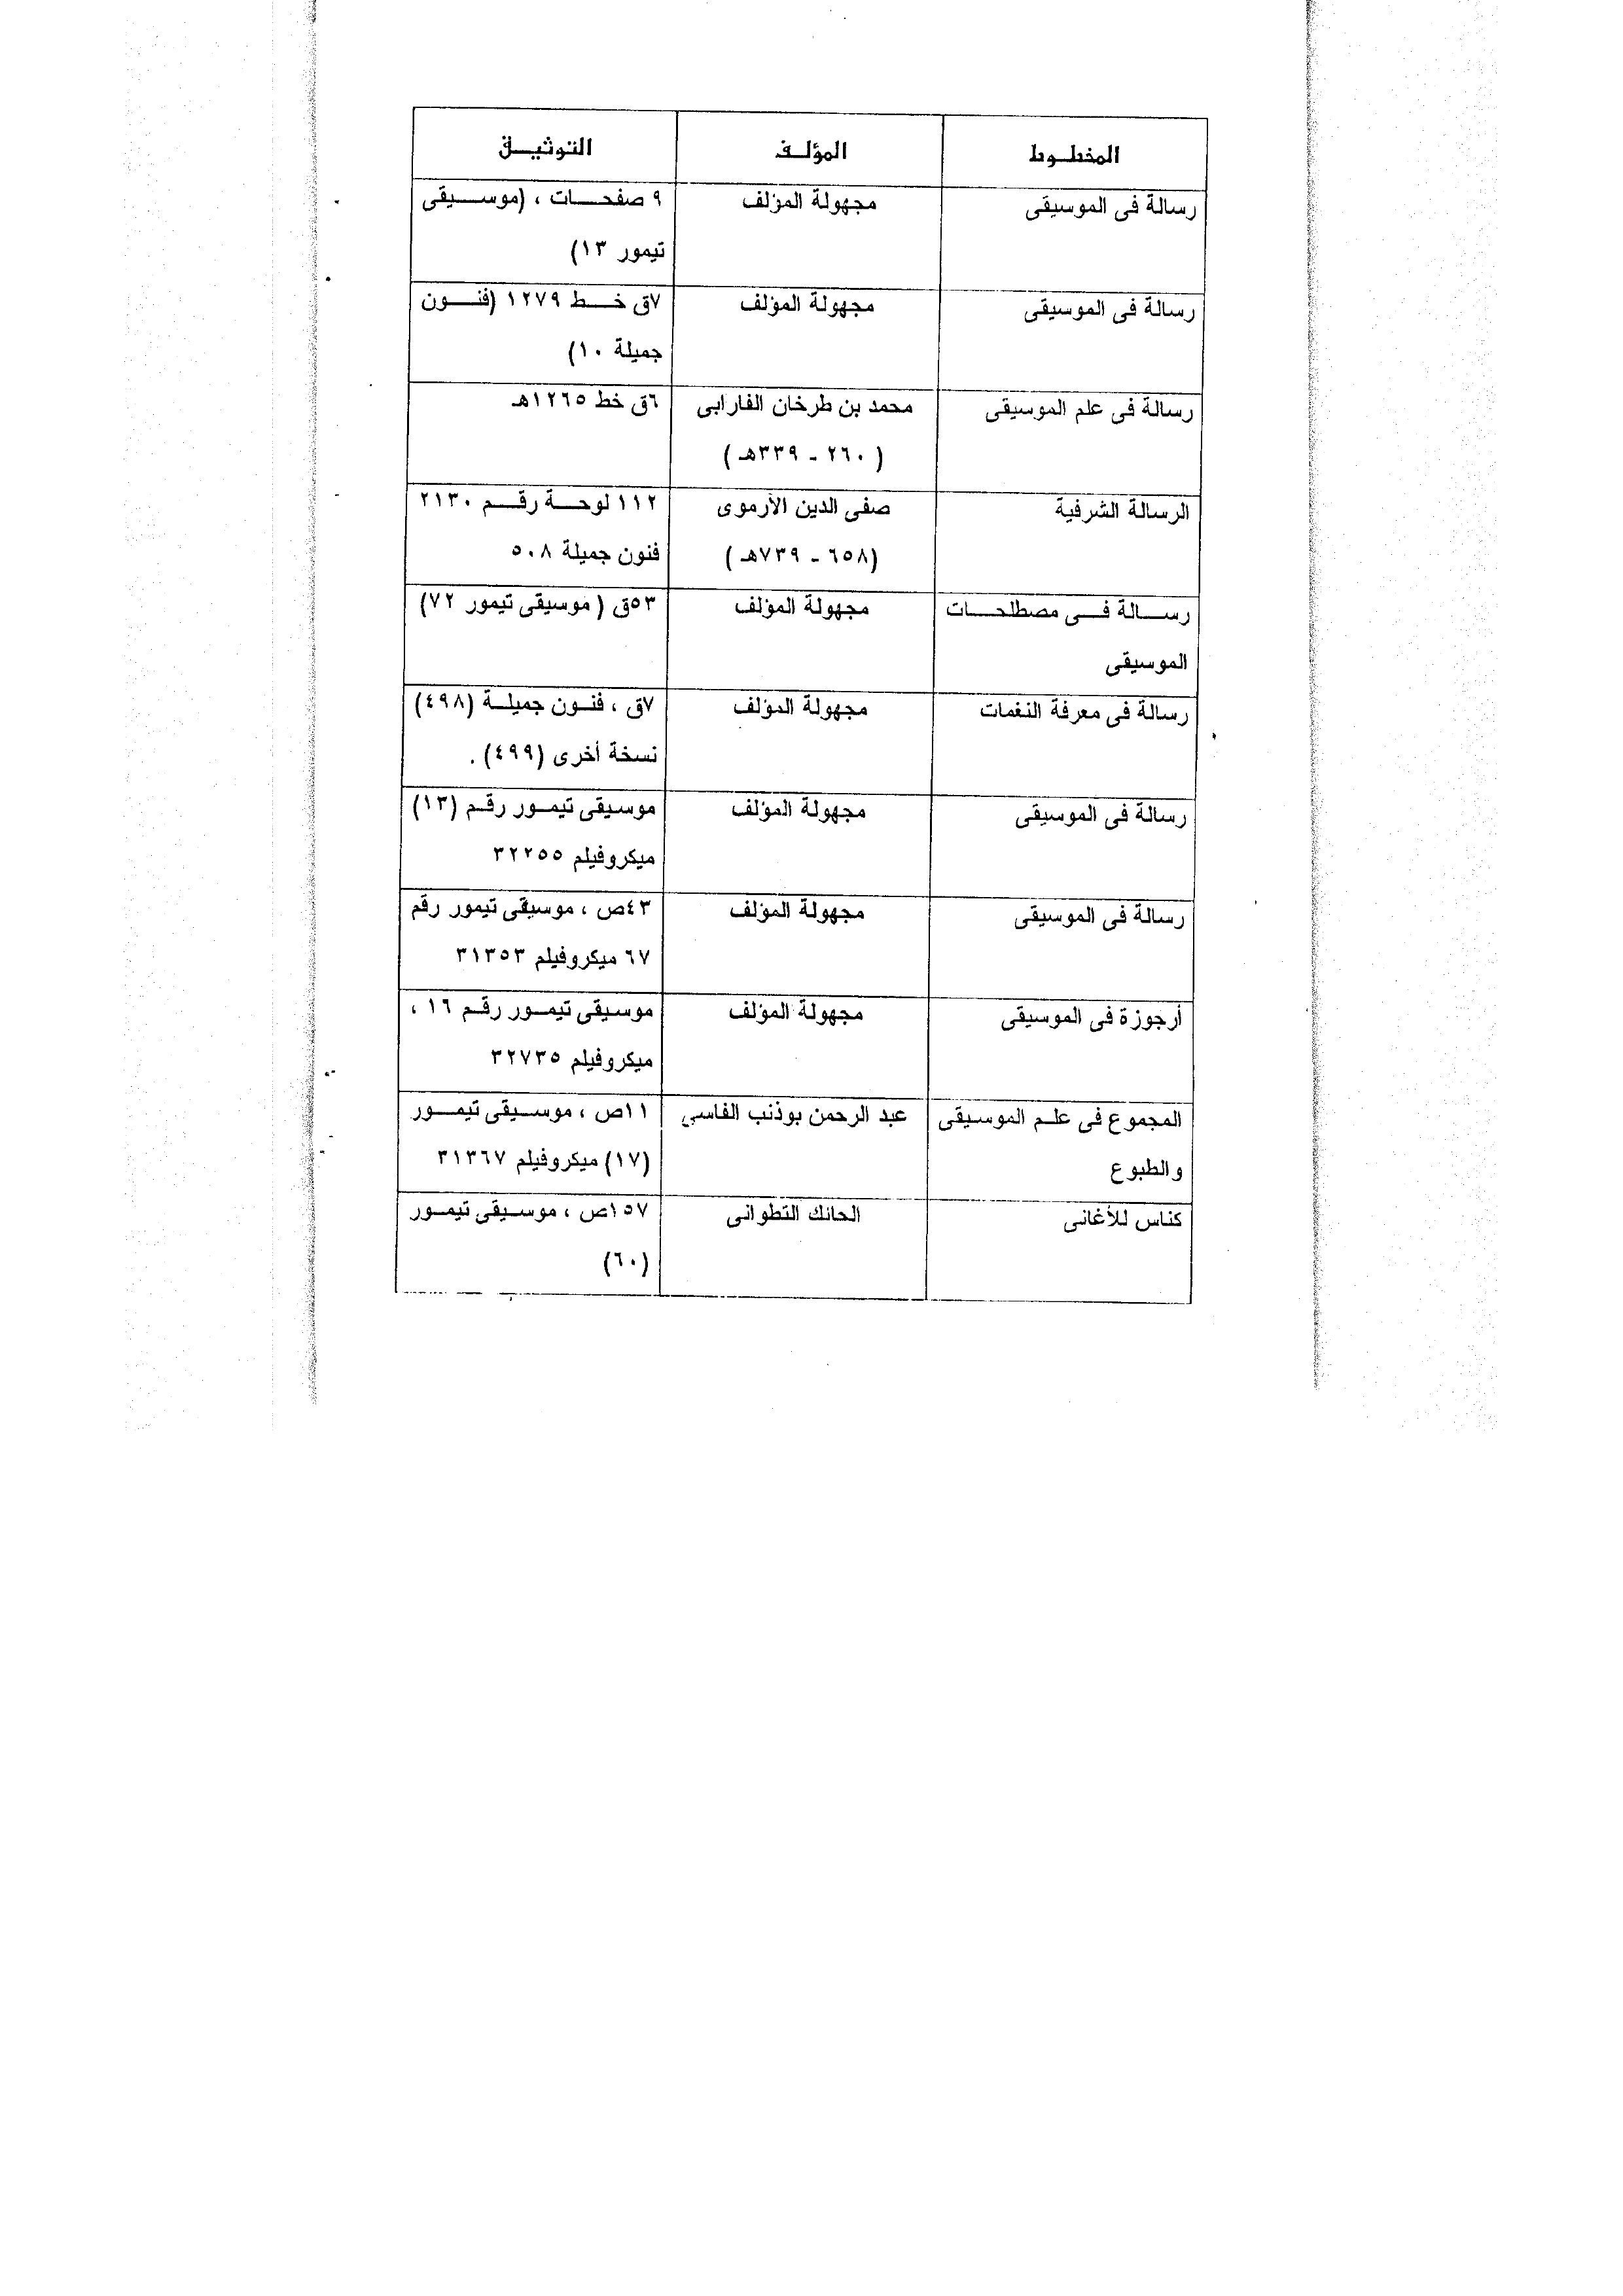 المخطوط المؤلف التوثيق
رسالة فى الموسيقى مجهولة المؤلف ٩ صفحات ، (موسيقى
تيمور ١٣)
رسالة فى الموسيقى مجهولة المؤلف ٧ق خط ١٢٧٩ (فنون
جميلة ١٠)
رسالة فى علم الموسيقى محمد بن طرخان الفارابى ٦ق خط ١٢٦٥هـ
( ٢٦٠ - ٣٣٩هـ )
الرسالة الشرفية صفى الدين الأرموى ١١٢ لوحة رقم ٢١٣٠
(٦٥٨ - ٧٣٩هـ ) فنون جميلة ٥٠٨
رسالة فى مصطلحات مجهولة المؤلف ٥٣ق ( موسيقى تيمور ٧٢)
الموسيقى
رسالة فى معرفة النغمات مجهولة المؤلف ٧ق ، فنون جميلة (٤٩٨)
نسخة أخرى (٤٩٩) .
رسالة فى الموسيقى مجهولة المؤلف موسيقى تيمور رقم (١٣)
ميكروفيلم ٣٢٢٥٥
رسالة فى الموسيقى مجهولة المؤلف ٤٣ص ، موسيقى تيمور رقم
٦٧ ميكروفيلم ٣١٣٥٣
أرجوزة فى الموسيقى مجهولة المؤلف موسيقى تيمور رقم ١٦ ،
ميكروفيلم ٣٢٧٣٥
المجموع فى علم الموسيقى عبد الرحمن بوذنب الفاسى ١١ص ، موسيقى تيمور
والطبوع (١٧) ميكروفيلم ٣١٣٦٧
كناس للأغانى الحائك التطوانى ١٥٧ص ، موسيقى تيمور
(٦٠)